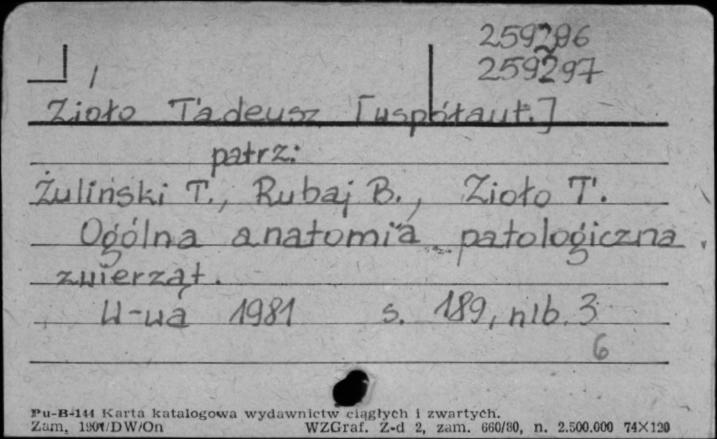 259296
259297
Zioło Tadeusz [współaut.]
patrz:
Żuliński T., Rubaj B., Zioło T.
Ogólna anatomia patologiczna
zwierząt.
W-wa 1981 s. 189, nlb. 3
6
Pu-B-144 Karta katalogowa wydawnictw ciągłych i zwartych.
Zam. 1901/DW/On WZGraf. Z-d 2, zam. 660/80, n. 2.500.000 74×120